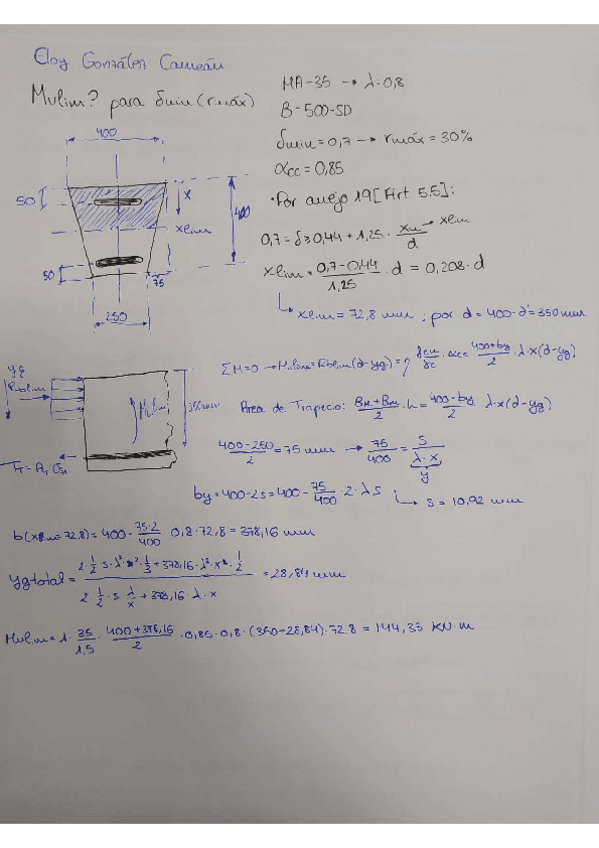 Eloy González Cameán
Mulim? para δmin (rmáx)
HA-35 → λ=0,8
B-500-SD
δmin = 0,7 → rmáx = 30%
αcc = 0,85
• Por anejo 19 [Art 5.5]:
0,7 = δ ≥ 0,44 + 1,25 · xu/d → xlim
xlim = (0,7-0,44)/1,25 · d = 0,208 · d
↳ xlim = 72,8 mm ; por d = 400-d' = 350 mm
400
50
x
xlim
400
50
75
250
yg
Rblim
Mulim
350mm
T1 = A1 σs1
ΣM=0 → Mulim = Rblim(d-yg) = η fck/γc · αcc (400+by)/2 · λ·x(d-yg)
Area de Trapecio: (BM + Bm)/2 · h = (400-by)/2 · λ·x(d-yg)
(400-250)/2 = 75 mm → 75/400 = s/(λ·x)
y
by = 400-2s = 400 - 75/400 · 2 · λ s ; ↳ s = 10,92 mm
b(xlim=72,8) = 400 - (75·2)/400 0,8·72,8 = 378,16 mm
yg total = (2·1/2·s·λ²·x²·1/3 + 378,16·λ²·x²·1/2)/(2·1/2·s λ/x + 378,16·λ·x) = 28,84 mm
Mulim = 1·35/1,5·(400+378,16)/2·0,85·0,8·(350-28,84)·72,8 = 144,33 KN·m